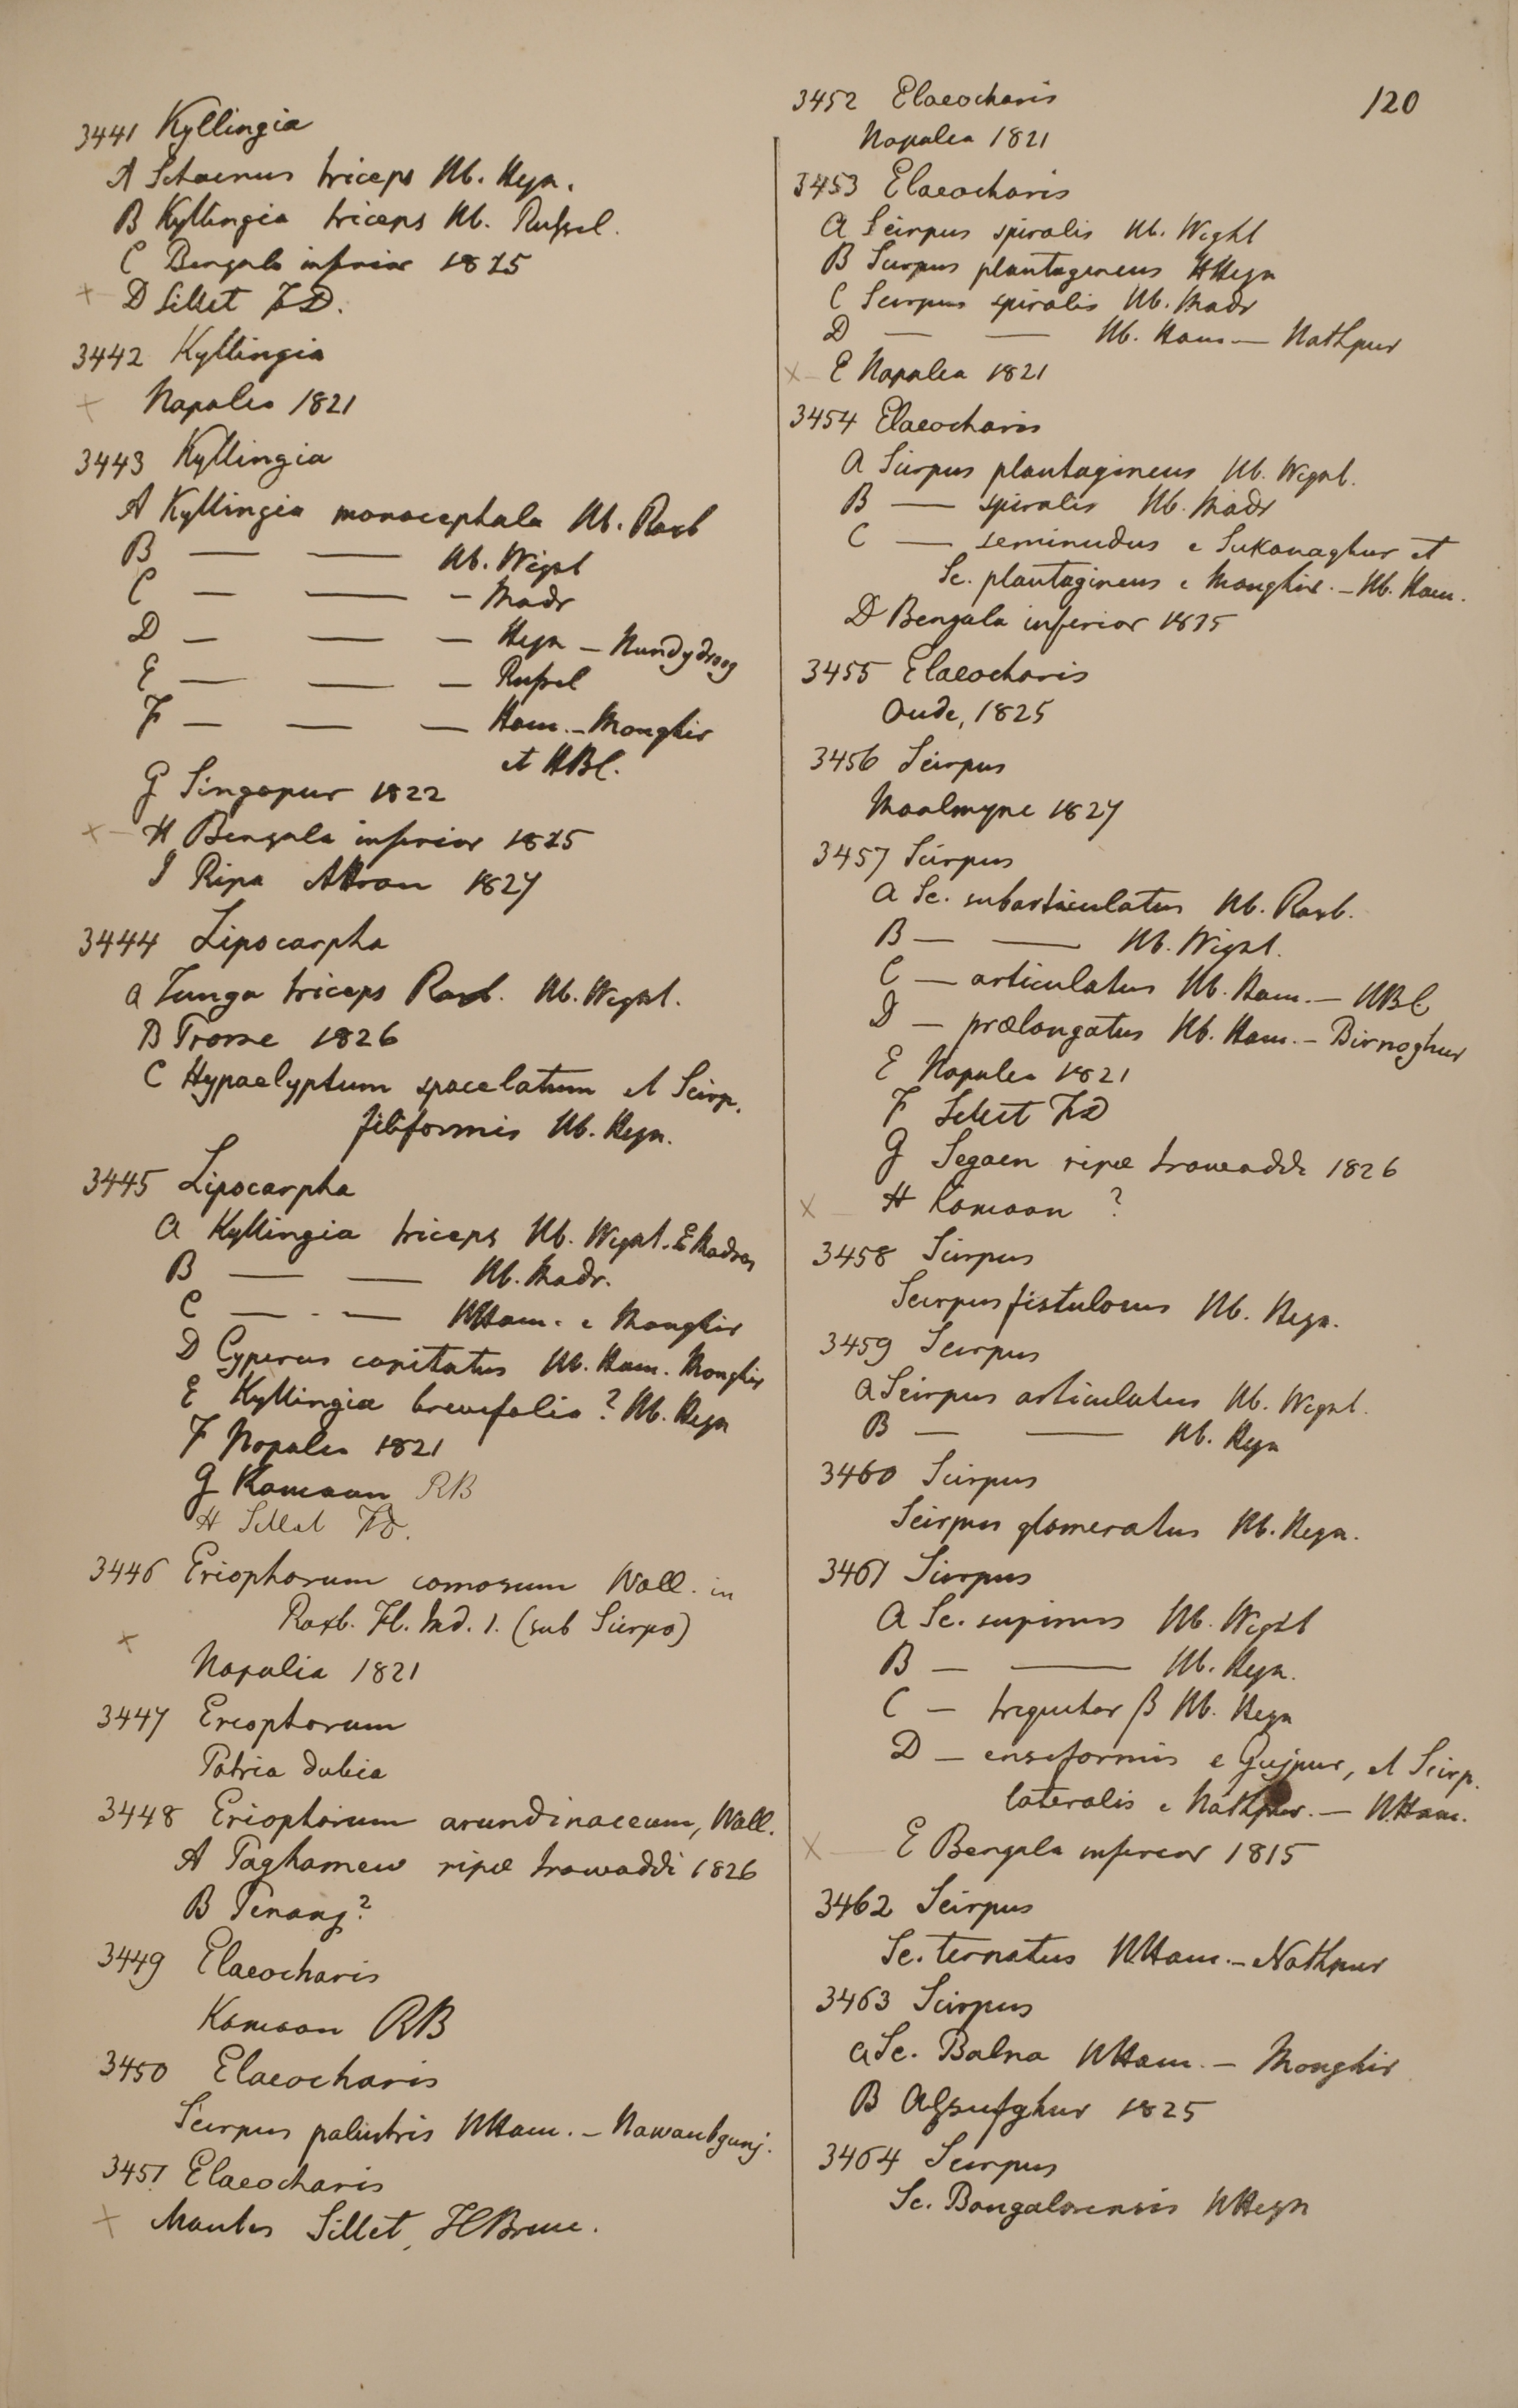 3441 Kyllingia
A Schoenus triceps Hb. Heyn.
B Kyllingia triceps Hb. Russel.
C Bengala inferior 1815
+ D Sillet FD.
3442 Kyllingia
+ Napalia 1821
3443 Kyllingia
A Kyllingia monocephala Hb. Roxb
B — — Hb. Wight
C — — - Madr
D — — — Heyn - Nundydroog
E — — — Russel
F — — — Ham. - Monghir
et HBC.
G Singapur 1822
x - H Bengala inferior 1815
I Ripa Attran 1827
3444 Lipocarpha
a Tunga triceps Roxb. Hb. Wight.
B Prome 1826
C Hypaelyptum spacelatum et Scirp.
filiformis Hb. Heyn.
3445 Lipocarpha
a Kyllingia triceps Hb. Wight. E Madras
B — — Hb. Madr.
C — - — HHam. e Monghir
D Cyperus capitatus Hb. Ham. Monghir
E Kyllingia brevifolia? Hb. Heyn
F Napalia 1821
G Kamaon RB
H Sillet FD.
3446 Eriophorum comosum Wall. in
Roxb. Fl. Ind. 1. (sub Scirpo)
+
Napalia 1821
3447 Eriophorum
Patria dubia
3448 Eriophorum arundinaceum, Wall.
A Paghamew ripæ Irawaddi 1826
B Penang?
3449 Elaeocharis
Kamaon RB
3450 Elaeocharis
Scirpus palustris HHam. - Nawaubgunj.
3451 Elaeocharis
+ Montes Sillet, HBruce.
120
3452 Elaeocharis
Napalia 1821
3453 Elaeocharis
a Scirpus spiralis Hb. Wight
B Scirpus plantagineus HHeyn
C Scirpus spiralis Hb. Madr
D — — Hb. Ham — Nathpur
x - E Napalia 1821
3454 Elaeocharis
a Scirpus plantagineus Hb. Wight.
B — spiralis Hb. Madr
C — seminudus e Sukanaghur et
Sc. plantagineus e Monghir. - Hb. Ham.
D Bengala inferior 1815
3455 Elaeocharis
Oude, 1825
3456 Scirpus
Moalmyne 1827
3457 Scirpus
a Sc. subarticulatus Hb. Roxb.
B — — Hb. Wight.
C — articulatus Hb. Ham. — HBC
D — prælongatus Hb. Ham. - Birnoghur
E Napalia 1821
F Sillet FD
G Segaen ripæ Irawaddi 1826
x - H Kamaon ?
3458 Scirpus
Scirpus fistulosus Hb. Heyn.
3459 Scirpus
a Scirpus articulatus Hb. Wight.
B — — Hb. Heyn
3460 Scirpus
Scirpus glomeratus Hb. Heyn.
3461 Scirpus
a Sc. supinus Hb. Wight
B — — Hb. Heyn.
C — triqueter β Hb. Heyn
D — ensiformis e Gujpur, et Scirp.
lateralis e Nathpur. — HHam.
x — E Bengala inferior 1815
3462 Scirpus
Sc. ternatus HHam. - Nathpur
3463 Scirpus
a Sc. Balna HHam. - Monghir
B Azsufghur 1825
3464 Scirpus
Sc. Bangalorensis HHeyn